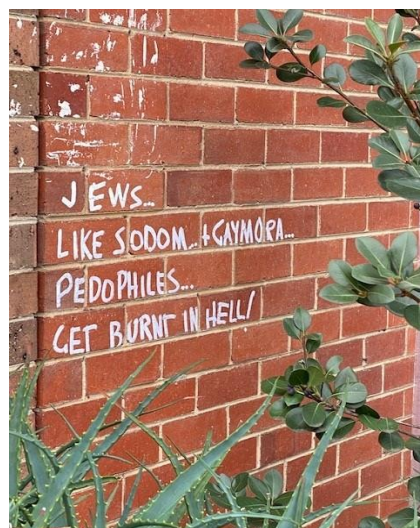 JEWS...
LIKE SODOM..+GAYMORA...
PEDOPHILES...
GET BURNT IN HELL!